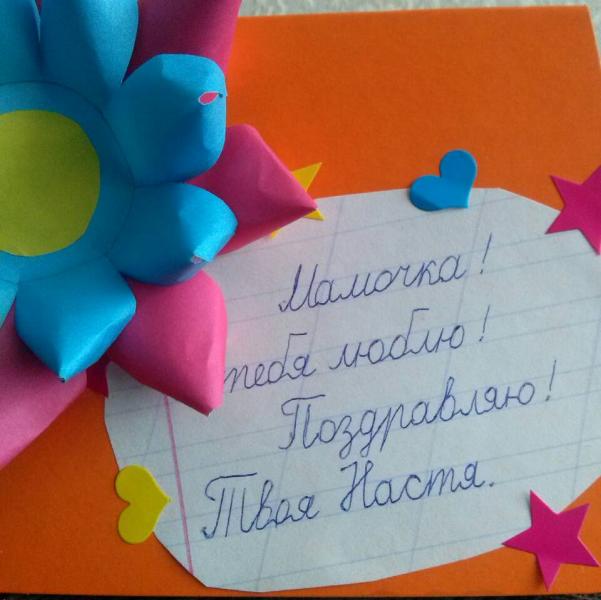 Мамочка!
тебя люблю!
Поздравляю!
Твоя Настя.